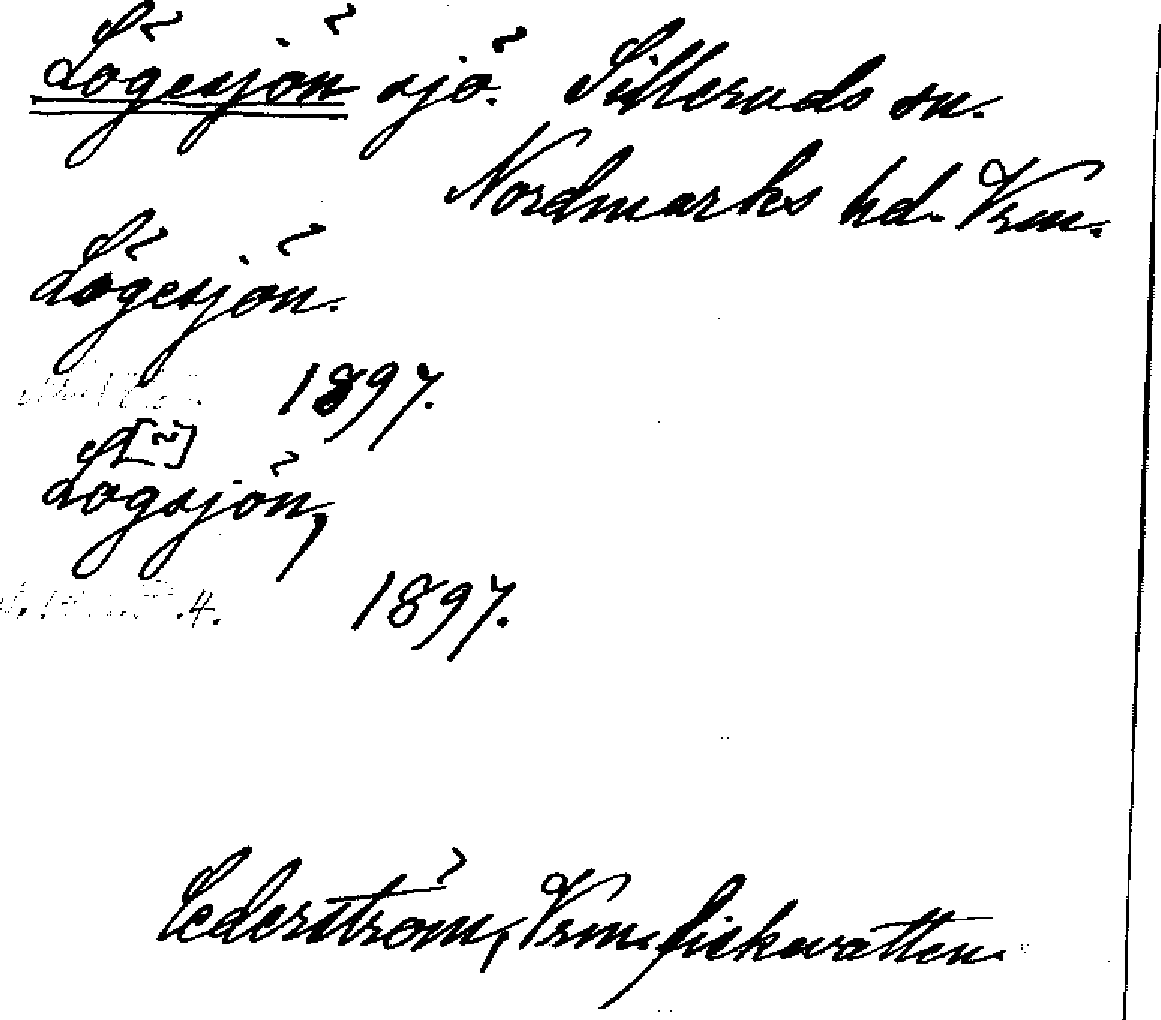 Lögesjön sjö. Silleruds sn.
Nordmarks hd. Vrm.
Lögesjön.
1897.
L[ö]gsjön,
1897.
Cederström, Vrm. fiskevatten.